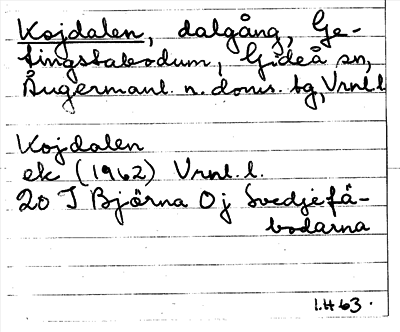 Kojdalen, dalgång, Ge-
tingstabodum, Gideå sn,
Ångermanl. n. doms. bg, Vrnl. l
Kojdalen
ek (1962) Vrnl. l.
20 I Björna Oj Svedjefä-
bodarna
I.H 63.